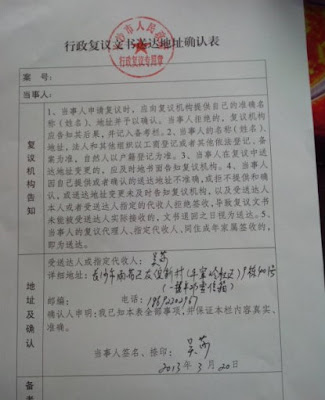 行政复议文书送达地址确认表
市人民政
行政复议专用章
案 号:
当事人:
复议机构告知
1、当事人申请复议时，应向复议机构提供自己的准确名
称（姓名）、地址并予以确认。当事人拒绝的，复议机构
应告知其后果，并记入备考栏。2、当事人的名称（姓名）、
地址，法人和其他组织以工商登记或者其他依法登记、备
案为准，自然人以户籍登记为准。3、当事人在复议中送
达地址变更的，应及时地书面告知复议机构。4、当事人
因自己提供或者确认的送达地址不准确，或拒不提供和确
认，或送达地址变更未及时告知复议机构，以及受送达人
本人或者受送达人指定的代收人拒绝签收，导致复议文书
未能被受送达人实际接收的，文书退回之日视为送达。5、
当事人的复议代理人、指定代收人、同住成年家属签收的，
即为送达。
地址及确认
受送达人或指定代收人:
详细地址: 长沙市雨花区
邮编: 电话:
确认人申明:我已知本表全部事项，并保证本栏内容真实、
准确。
当事人签名、捺印:
2013年 3月 20日
备